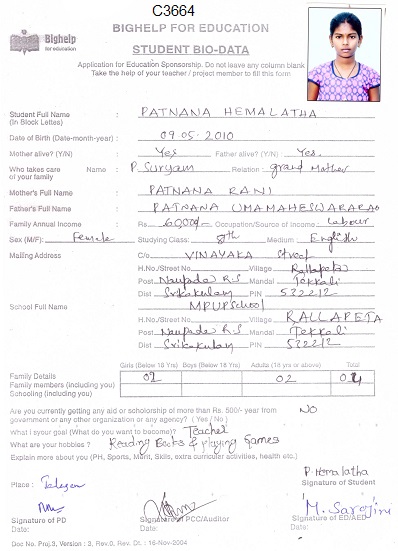 C3664
BIGHELP FOR EDUCATION
Bighelp
for education
STUDENT BIO-DATA
Application for Education Sponsorship. Do not leave any column blank
Take the help of your teacher / project member to fill this form
Student Full Name : PATNANA HEMALATHA
(in Block Letters)
Date of Birth (Date-month-year) : 09.05.2010
Mother alive? (Y/N) : Yes Father alive? (Y/N) : Yes.
Who takes care Name : P. Suryam Relation : grand Mother
of your family
Mother's Full Name : PATNANA RANI
Father's Full Name : PATNANA UMAMAHESWARARAO
Family Annual Income : Rs. 60,000/- Occupation/Source of Income : Labour
Sex (M/F): Female Studying Class: 8th Medium : English
Mailing Address C/o VINAYAKA Street
H.No./Street No. Village Rallapeta
Post. Naupada R.S Mandal Tekkali
Dist Srikakulam PIN 532212
School Full Name : MPUPSchool
H.No./Street No. Village RALLAPETA
Post. Naupada R.S Mandal Tekkali
Dist Srikakulam PIN 532212
Girls (Below 18 Yrs) Boys (Below 18 Yrs) Adults (18 yrs or above) Total
Family Details
Family members (including you) 02 02 04
Schooling (including you)
Are you currently getting any aid or scholarship of more than Rs. 500/- year from NO
government or any other organization or any agency? ( Yes / No )
What is your goal (What do you want to become) ? Teacher
What are your hobbies ? Reading Books & playing Games
Explain more about you (PH, Sports, Merit, Skills, extra curricular activities, health etc.)
P. Hemalatha
Place : Signature of Student
M. Sarojini
Signature of PD Signature of PCC/Auditor Signature of ED/AED
Date: Date: Date:
Doc No. Proj.3, Version : 3, Rev.0, Rev. Dt. : 16-Nov-2004